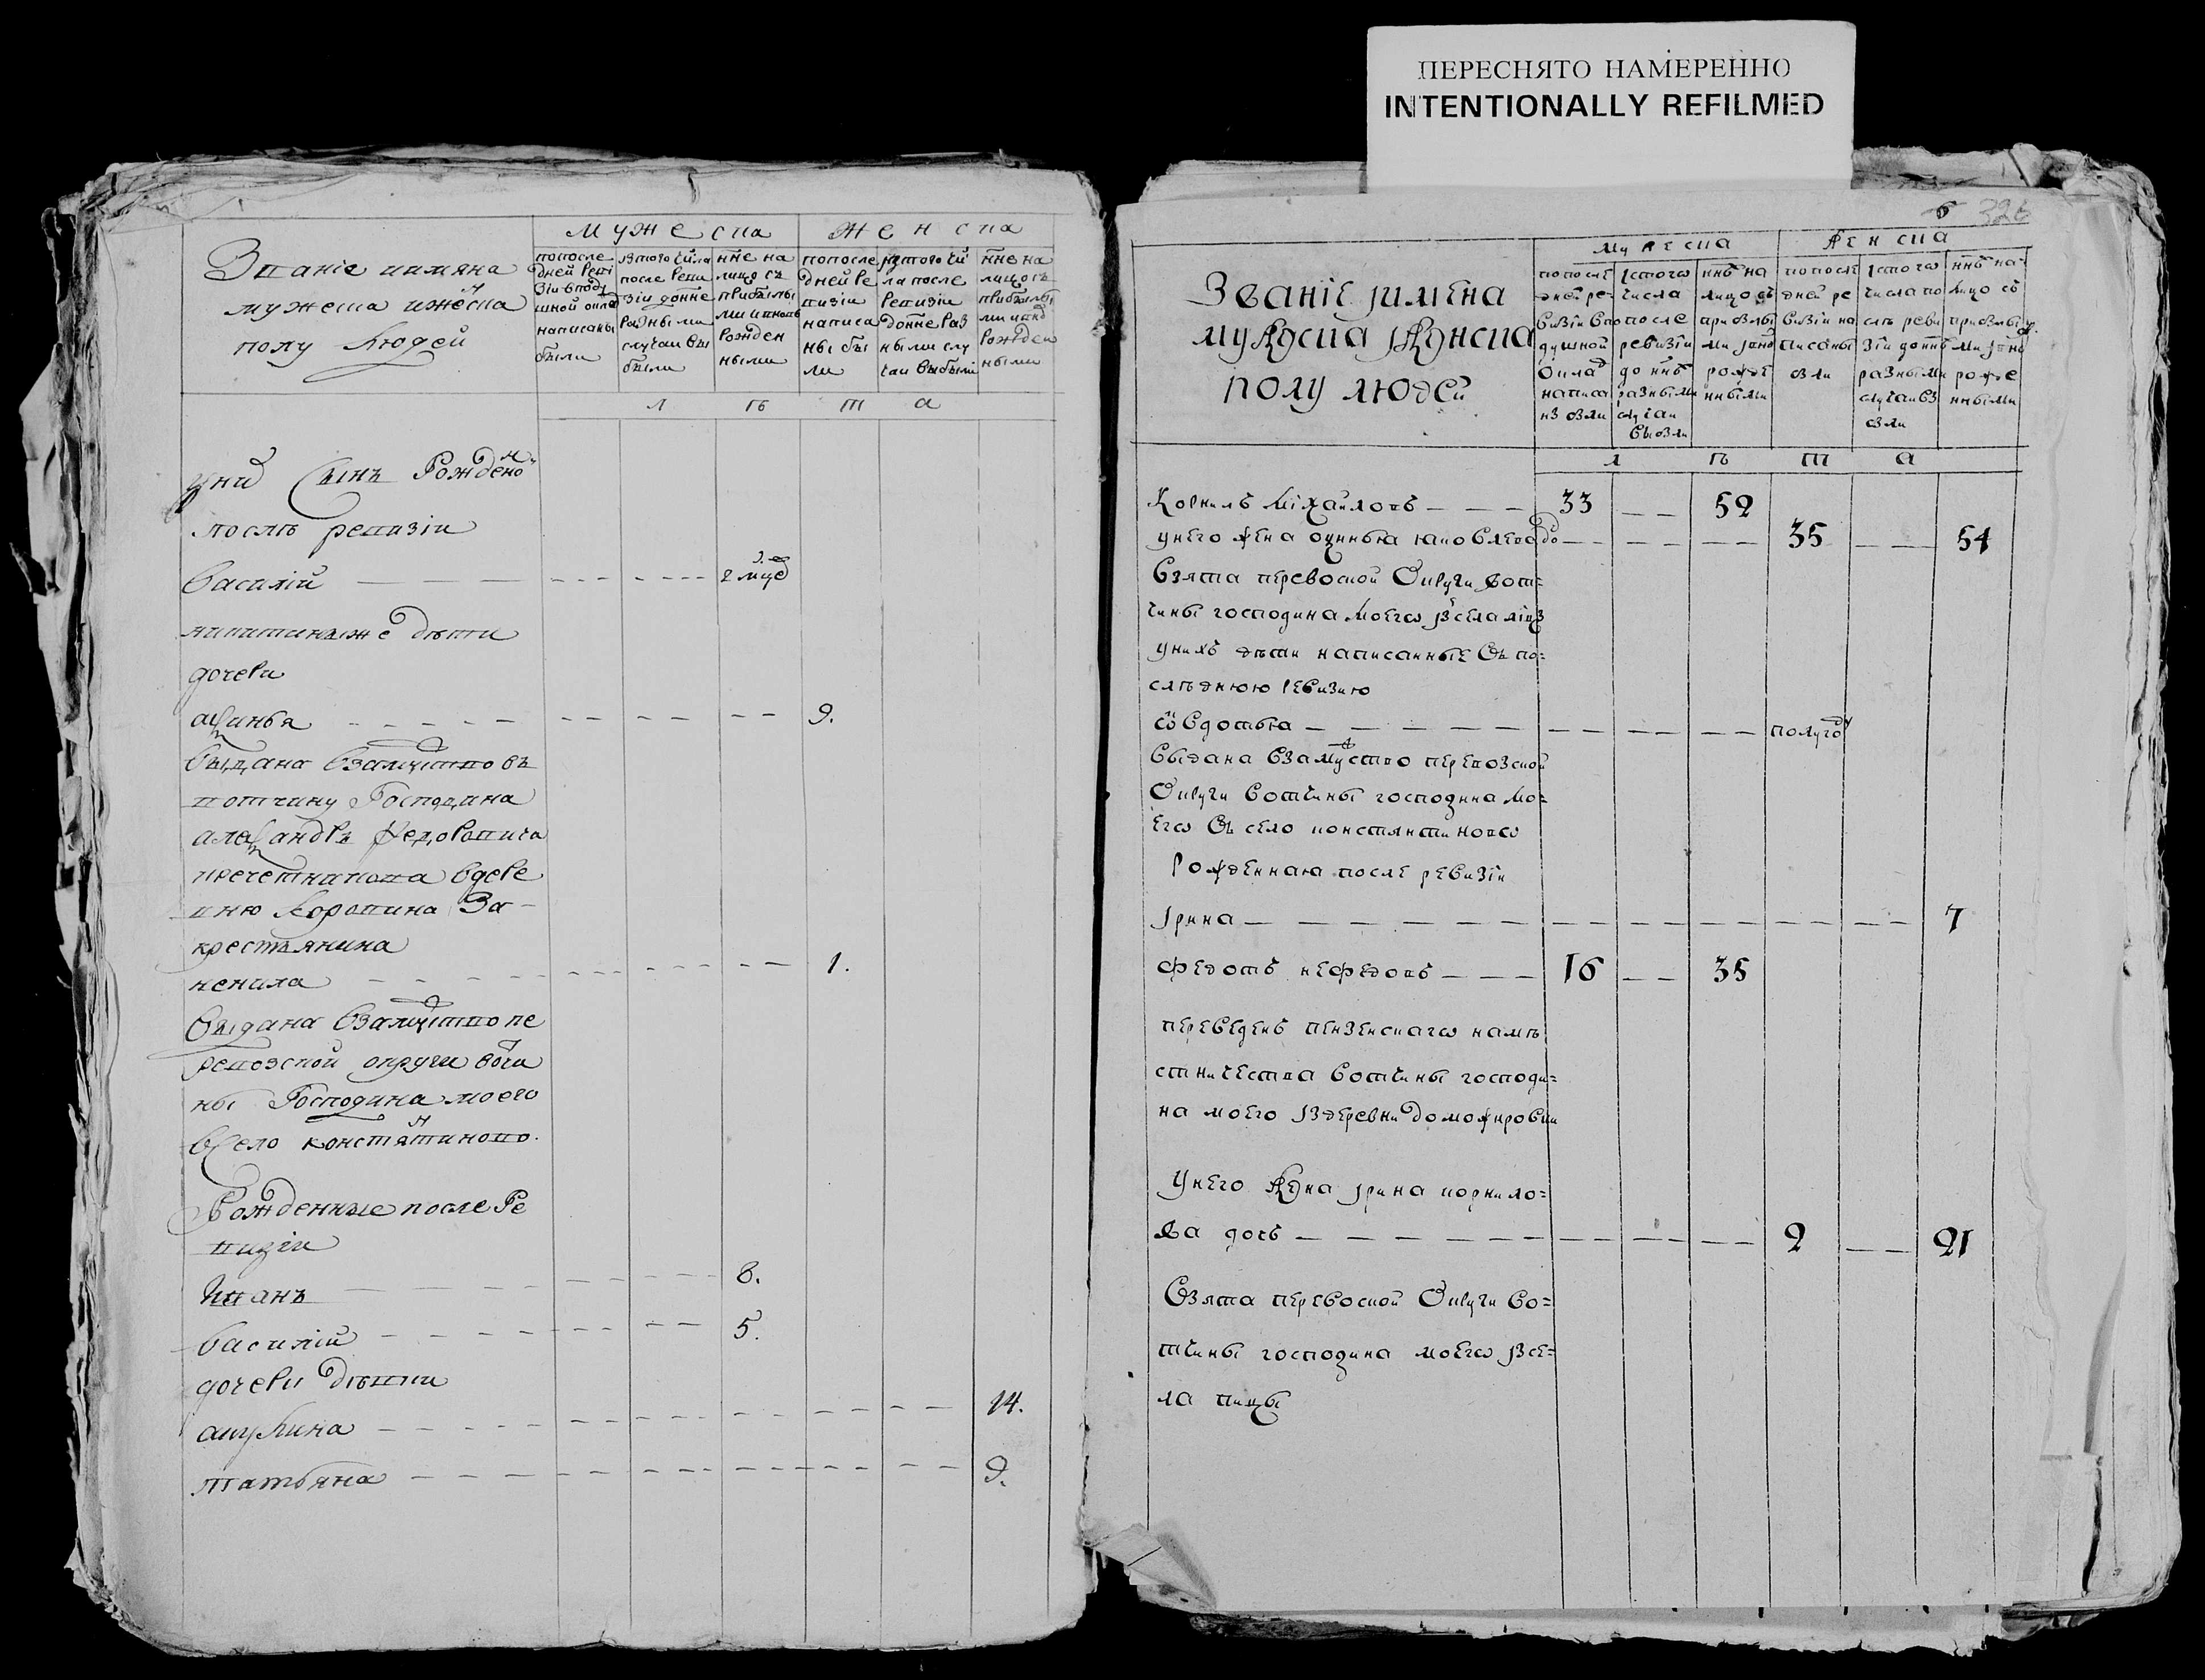 ПЕРЕСНЯТО НАМЕРЕННО
INTENTIONALLY REFILMED
Званіе иимяна
мужеска иженска
полу людей
мужеска
женска
попосле
дней реви
зіи вподу
шной окла
написаны
были
изтого числа
после реви
зіи донне
разными
случаи вы
были
нне на
лицо съ
прибылы
ми ивновь
рожден
ными
попосле
дней ре
визіи
написа
ны бы
ли
изтого чи
ла после
ревизіи
донне раз
ными слу
чаи выбыли
нне на
лицо съ
прибылы
ми ивно
рожден
ными
л ѣ т а
уних сынъ рожденно
послѣ ревизіи
василій 2 мцед
никитиныже дѣти
дочери
аксинья 9.
выдана взамуство въ
вотчину господина
александръ федоровича
кречетникова вдере
вню коровина за
крестьянина
ненила 1.
выдана взамуство пе
ревозской округи вотчи
ны господина моего
всело константиново.
рожденные после ре
визіи
иванъ 8.
василій 5.
дочери дѣвки
акулина 14.
татьяна 9.
6 326
Званіе имена
мужеска женска
полу людей
мужеска
женска
попосле
дней ре
визіи впо
душной
оклад
написа
нъ были
істого
числа
после
ревизіи
до ннѣ
разными
случаи
выбыли
ннѣ на
лицо съ
прибылы
ми івно
рожде
нными
попосле
дней ре
визіи на
писаны
были
істого
числа по
слѣ реви
зіи доннѣ
разными
случаи вы
были
ннѣ на
лицо съ
прибылы
ми івно
рожде
нными
л ѣ т а
Корнилъ міхаиловъ 33 52
унего жена іаковлева до 35 54
взята перевоской округи вот=
чины господина моего ізсела
унихъ дѣти написанные въ по=
слѣднюю ревизию
овдотья полугоду
выдана взамуство перевозской
округи вотчины господина мо=
его въ село константиново
рожденная после ревизіи
ірина 7
федотъ нефедовъ 16 35
переведенъ пензенскаго намѣ
стничества вотчины господи=
на моего іздеревни доможировки
унего жена ірина корнило=
ва дочь 2 21
взята перевоской округи во=
тчины господина моего ізсе=
ла пицы